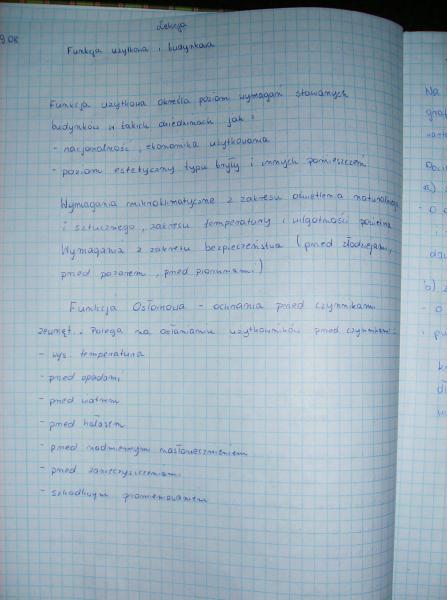 Lekcja
9.08
Funkcja użytkowa i budynkowa
Funkcja użytkowa określa poziom wymagań stawianych
budynków w takich dziedzinach jak :
- racjonalność, ekonomika użytkowania
- poziom estetyczny typu bryły i innych pomieszczeń
Wymagania mikroklimatyczne z zakresu oświetlenia naturalnego
i sztucznego, zakresu temperatury i wilgotności powietrza
Wymagania z zakresu bezpieczeństwa (przed złodziejami,
przed pożarem, przed piorunami)
Funkcja Osłonowa - ochrania przed czynnikami
zewnęt.. Polega na osłanianiu użytkowników przed czynnikami:
- wys. temperatura
- przed opadami
- przed wiatrem
- przed hałasem
- przed nadmiernym nasłonecznieniem
- przed zanieczyszczeniami
- szkodliwym promieniowaniem
Na
a)
b)